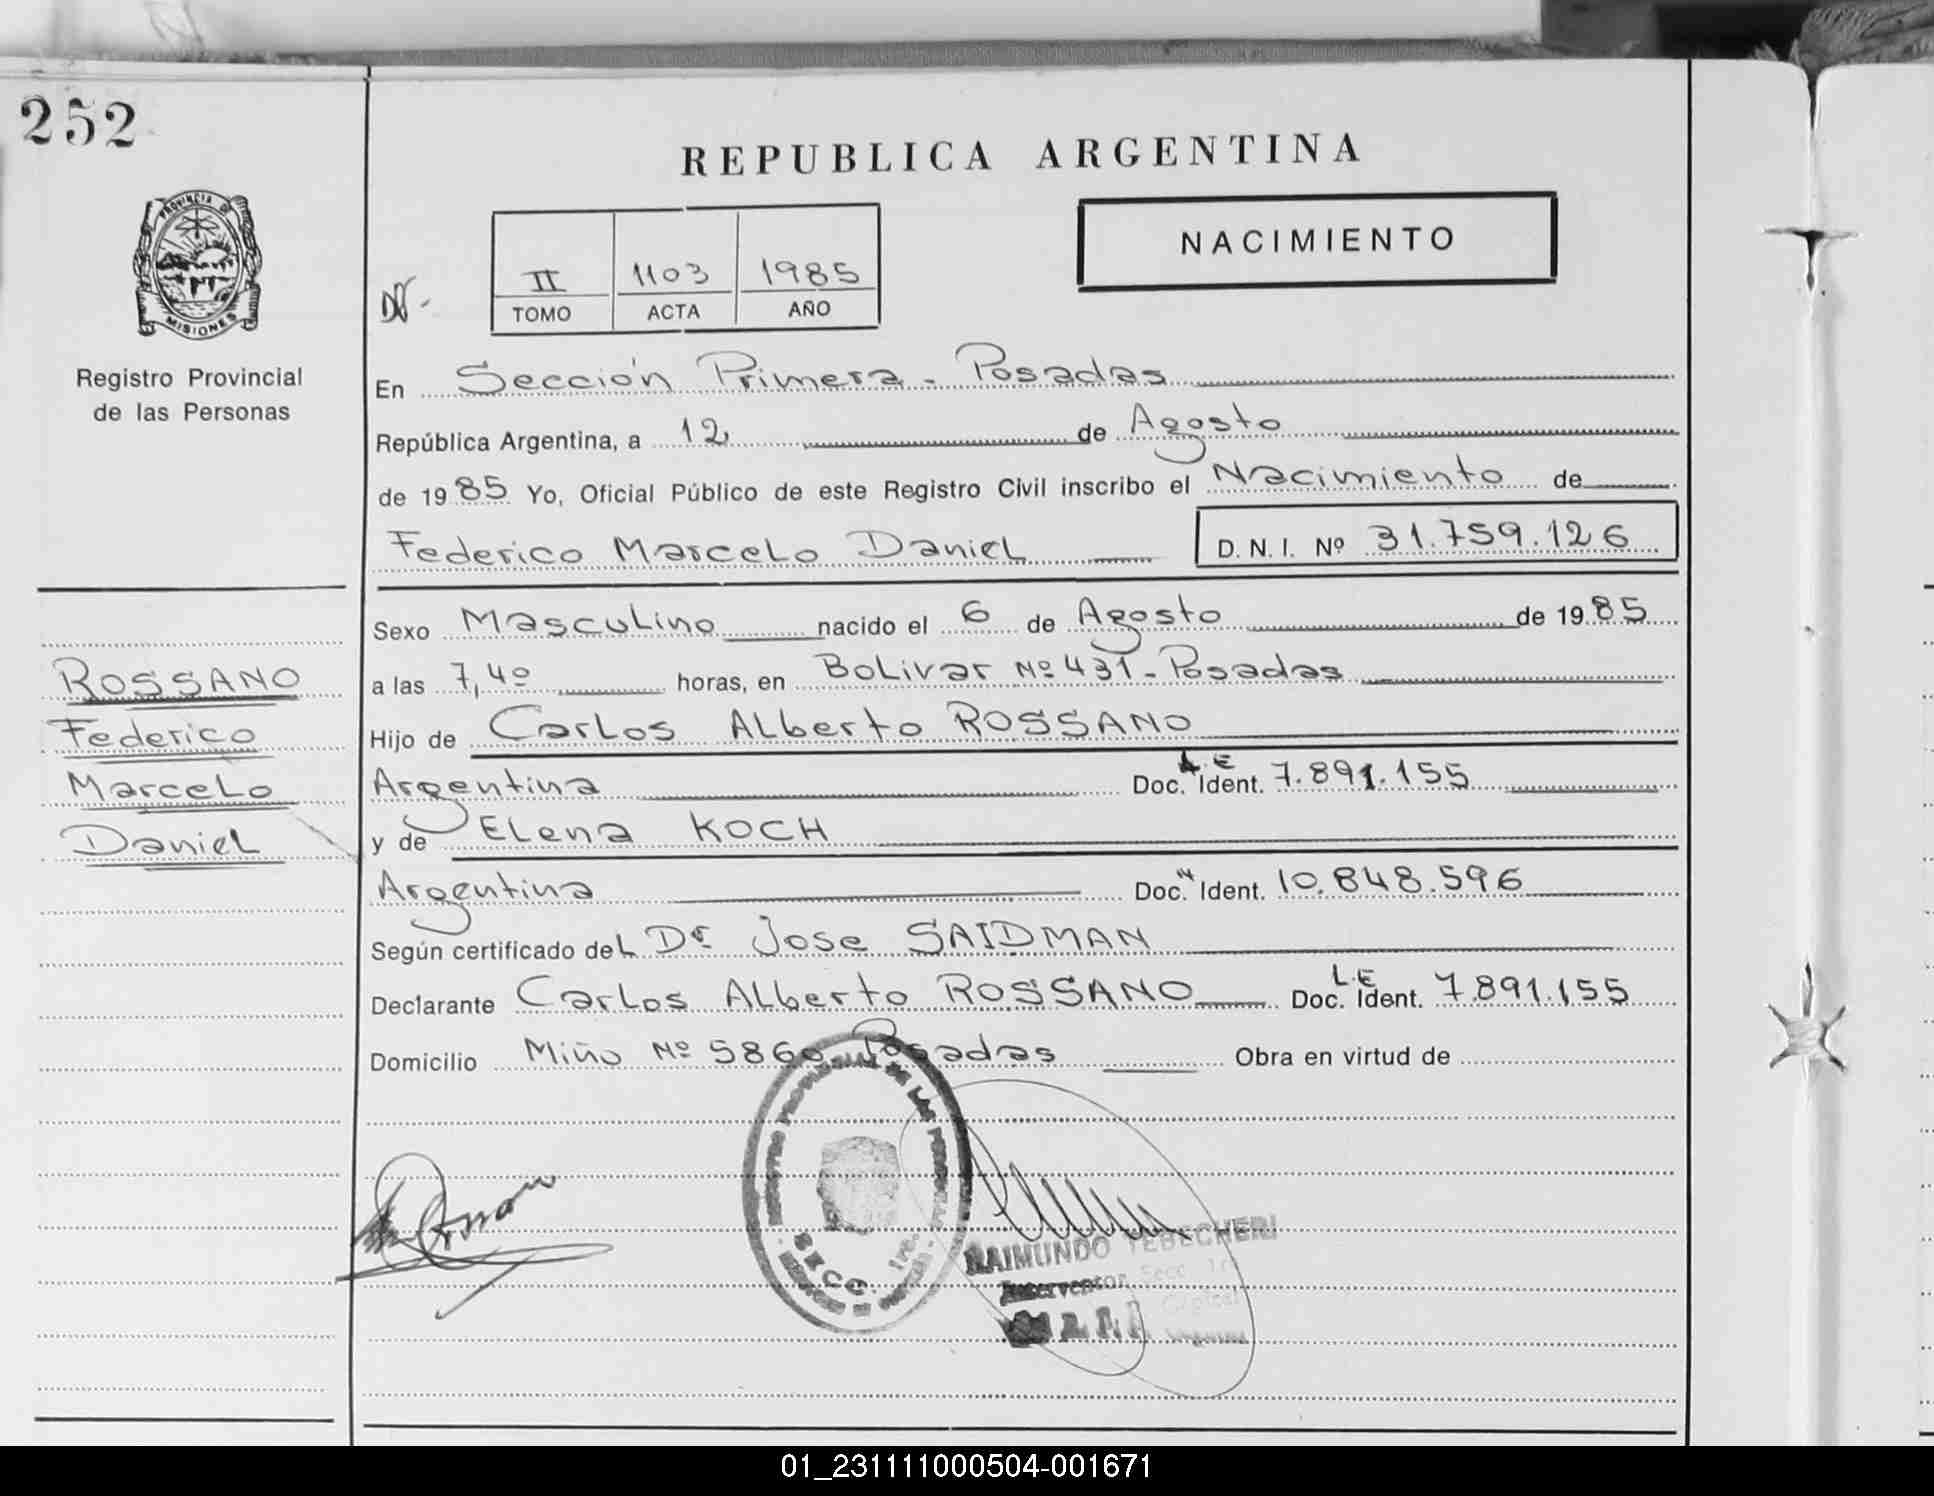 252
REPUBLICA ARGENTINA
PROVINCIA DE
MISIONES
Registro Provincial
de las Personas
NACIMIENTO
II 1103 1985
TOMO ACTA AÑO
En Sección Primera - Posadas
República Argentina, a 12 de Agosto
de 1985 Yo, Oficial Público de este Registro Civil inscribo el Nacimiento de
Federico Marcelo Daniel D. N. I. Nº 31.759.126
Sexo Masculino nacido el 6 de Agosto de 1985
a las 7,40 horas, en Bolivar Nº 431 - Posadas
Hijo de Carlos Alberto ROSSANO
Argentina Doc. L.E Ident. 7.891.155
y de Elena KOCH
Argentina Doc. Ident. 10.848.596
Según certificado del Dr Jose SAIDMAN
Declarante Carlos Alberto ROSSANO Doc. L.E Ident. 7.891.155
Domicilio Miño Nº 5860 Posadas Obra en virtud de
ROSSANO
Federico
Marcelo
Daniel
REGISTRO PROVINCIAL DE LAS PERSONAS
SECC. 1ra.
RAIMUNDO TEBECHERI
Interventor Secc. 1ra
Capital
01_231111000504-001671